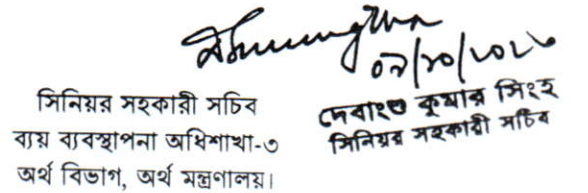 ০৯/১০/২০২৩
সিনিয়র সহকারী সচিব
ব্যয় ব্যবস্থাপনা অধিশাখা-৩
অর্থ বিভাগ, অর্থ মন্ত্রণালয়।
দেবাংশু কুমার সিংহ
সিনিয়র সহকারী সচিব